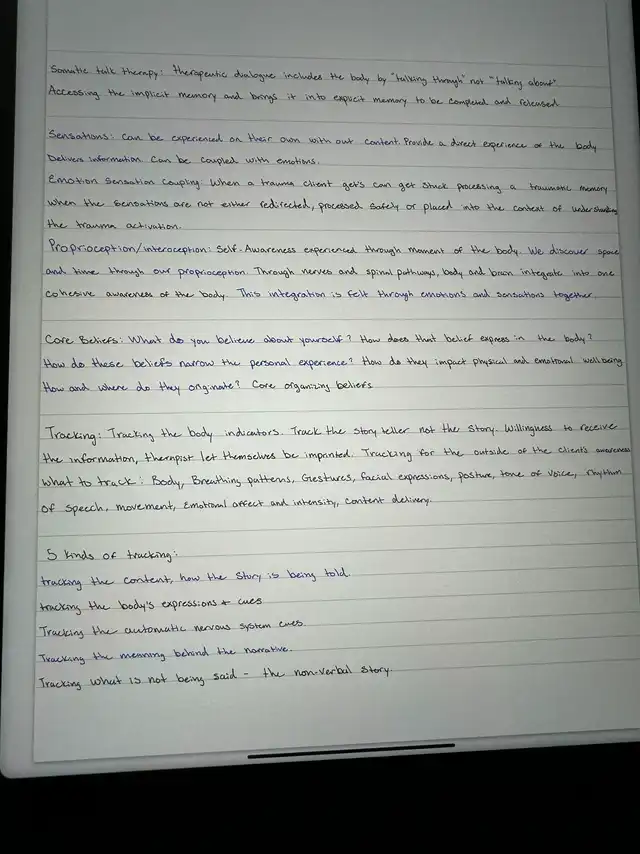 Somatic talk therapy: therapeutic dialogue includes the body by "talking through" not "talking about"
Accessing the implicit memory and brings it into explicit memory to be completed and released.
Sensations: can be experienced on their own with out content. Provide a direct experience of the body
Delivers information. Can be coupled with emotions.
Emotion Sensation Coupling: When a trauma client get's can get stuck processing a traumatic memory
when the sensations are not either redirected, processed safely or placed into the context of understanding
the trauma activation.
Proprioception/interoception: Self-Awareness experienced through moment of the body. We discover space
and time through our proprioception. Through nerves and spinal pathways, body and brain integrate into one
cohesive awareness of the body. This integration is felt through emotions and sensations together.
Core Beliefs: What do you believe about yourself? How does that belief express in the body?
How do these beliefs narrow the personal experience? How do they impact physical and emotional well being
How and where do they originate? Core organizing beliefs
Tracking: Tracking the body indicators. Track the story teller not the story. Willingness to receive
the information, therapist let themselves be imprinted. Tracking for the outside of the client's awareness
What to track: Body, Breathing patterns, Gestures, facial expressions, posture, tone of voice, rhythm
of speech, movement, Emotional affect and intensity, content delivery.
5 kinds of tracking:
tracking the content, how the story is being told.
tracking the body's expressions + cues
Tracking the automatic nervous system cues.
Tracking the meaning behind the narrative.
Tracking what is not being said - the non-verbal story.